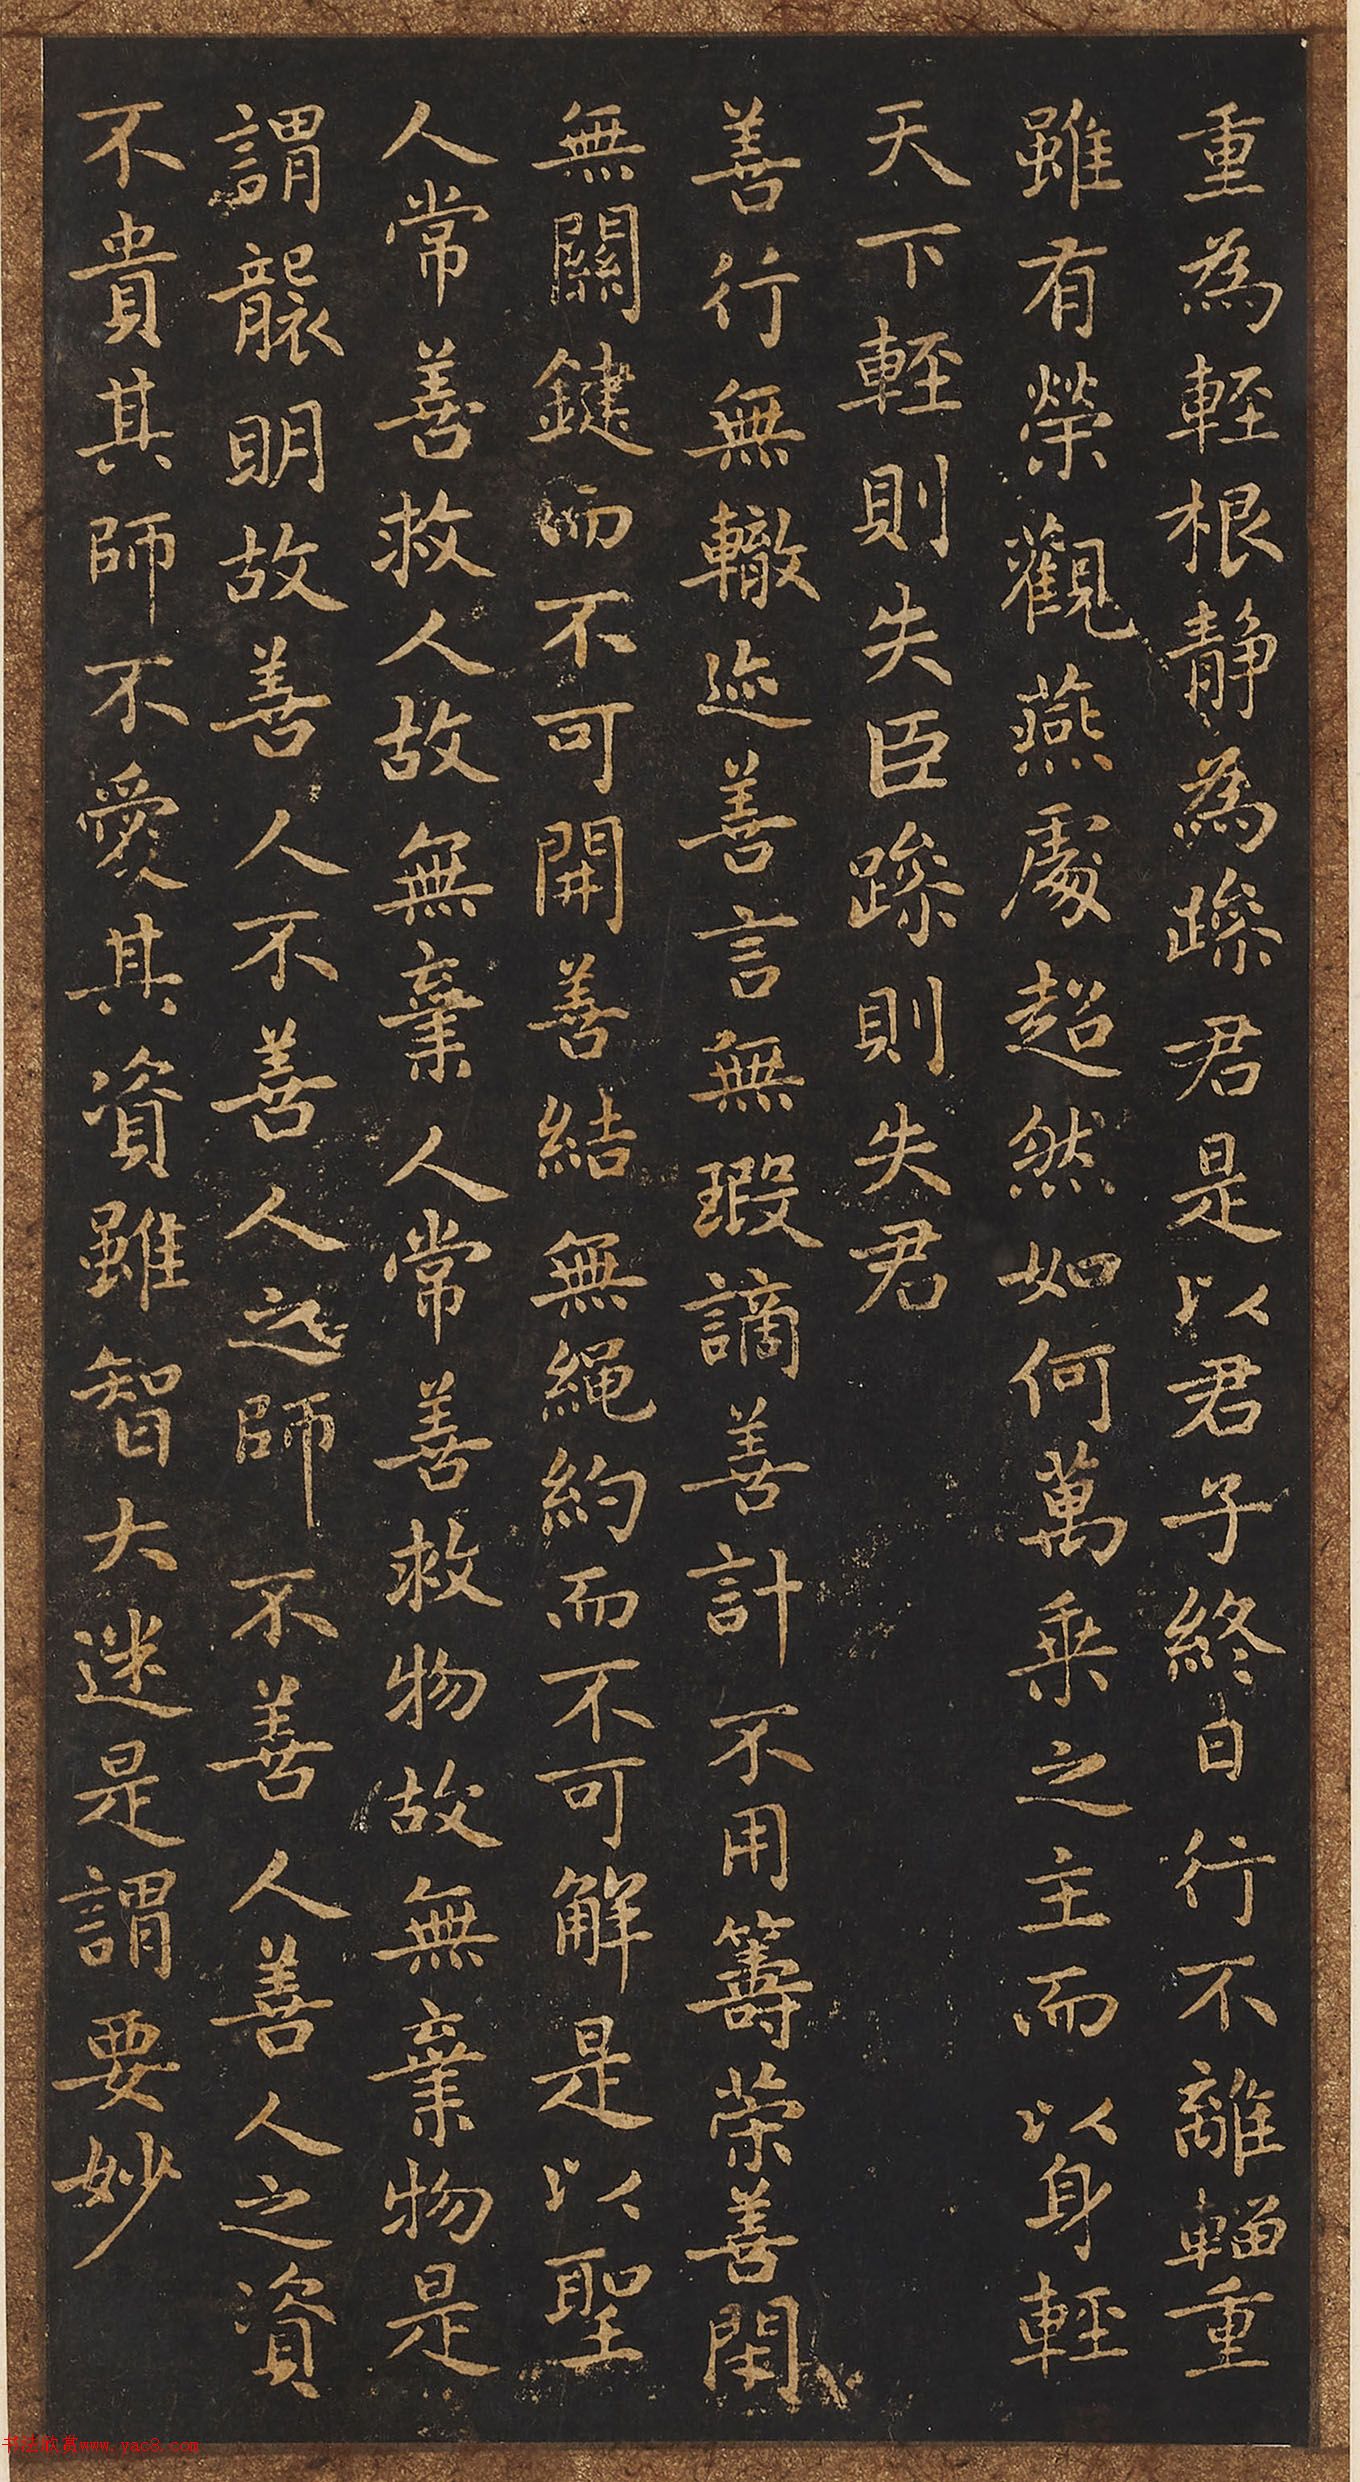 重為輕根静為躁君是以君子終日行不離輜重
雖有榮觀燕處超然如何萬乗之主而以身輕
天下輕則失臣躁則失君
善行無轍迹善言無瑕謫善計不用籌策善閇
無關鍵而不可開善結無繩約而不可解是以聖
人常善救人故無棄人常善救物故無棄物是
謂襲明故善人不善人之師不善人善人之資
不貴其師不愛其資雖智大迷是謂要妙
书法欣赏www.yac8.com